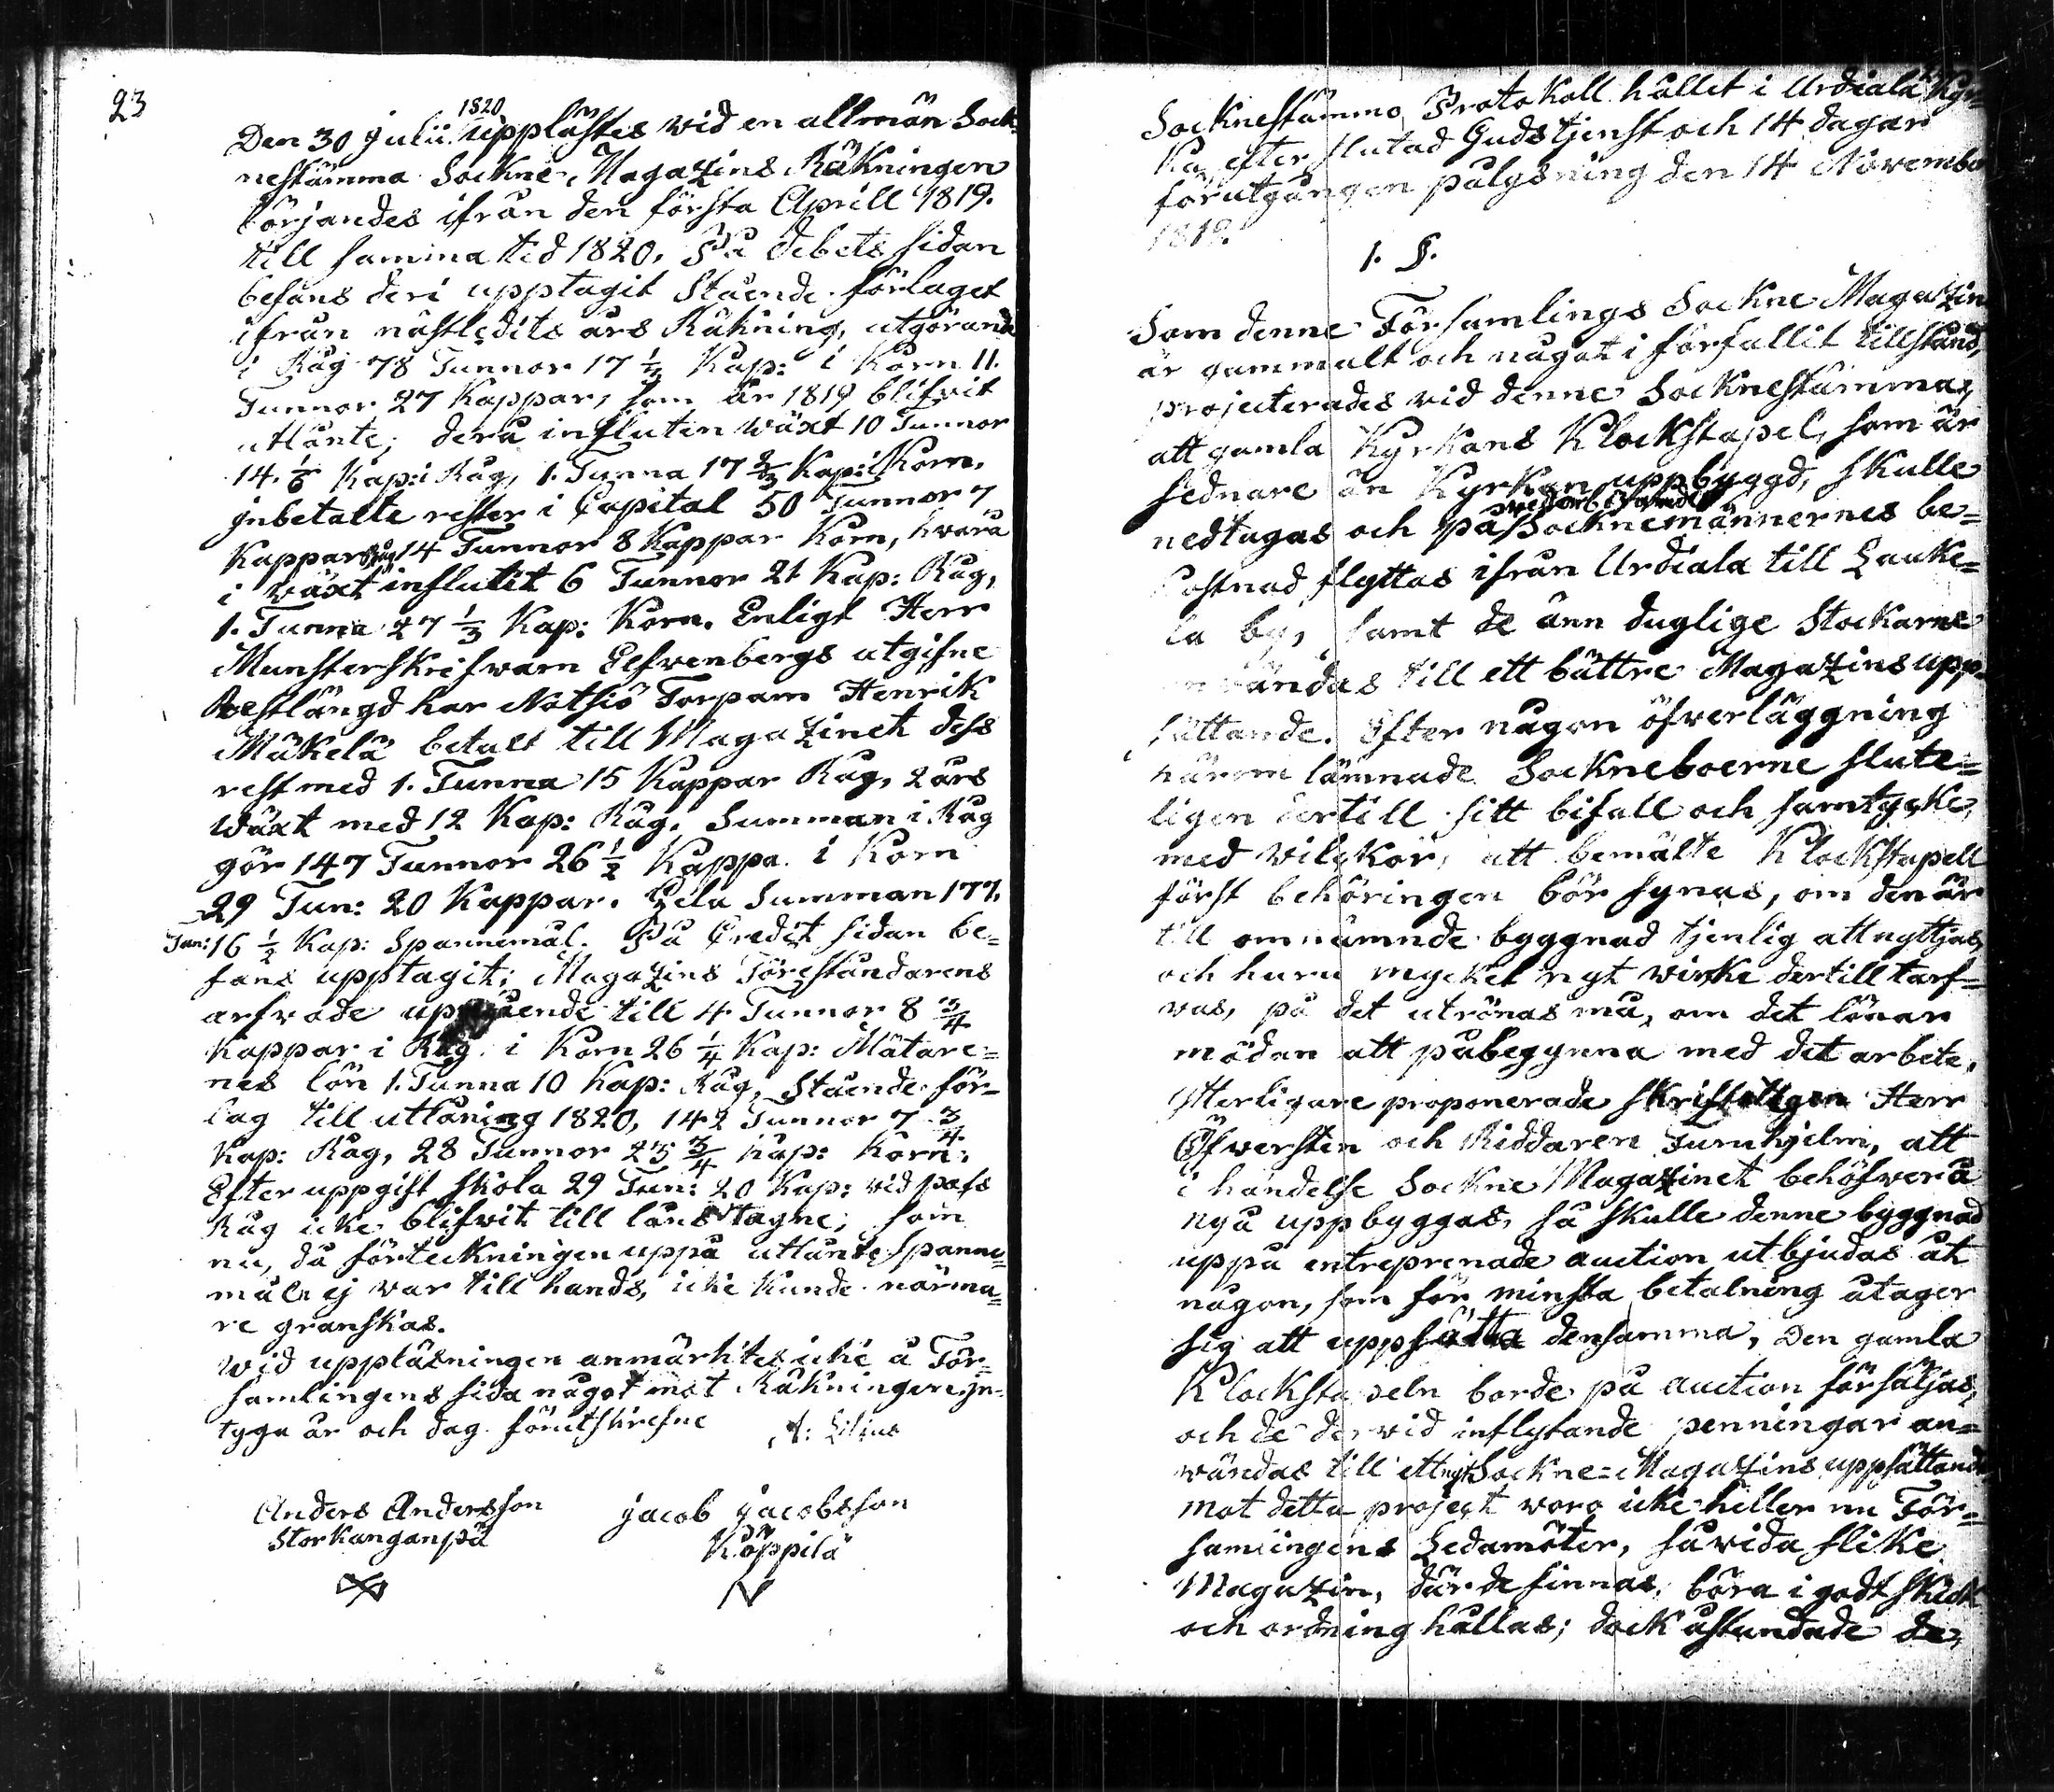 23
1820
Den 30 Julii upplästes wid en allmän Sock-
nestämma Sockne Magazins Räkningen
börjandes ifrån den första Aprill 1819.
till samma tid 1820. På Debets sidan
befans deri upptagit Stående förlaget
ifrån nästledits års Räkning, utgörande
i Råg 78 Tunnor 17 ½ Kap: i Korn 11.
Tunnor 27 Kappar, som år 1819 blifvit
utlånte; derå influten wäxt 10 Tunnor
14. 1/6 Kap: i Råg, 1. Tunna 17 2/3 Kap: i Korn.
Inbetalte rester i Capital 50 Tunnor 7
Kappar Råg 14 Tunnor 8 Kappar Korn, hvarå
i wäxt influtit 6 Tunnor 21 Kap: Råg,
1. Tunna 27 1/3 Kap: Korn. Enligt Herr
Munsterskrifwarn Elfvenbergs utgifne
Restlängd har Notsiö Torparn Henrik
Mäkelä betalt till Magazinet dess
rest med 1. Tunna 15 Kappar Råg, 2 års
Wäxt med 12 Kap: Råg. Summan i Råg
gör 147 Tunnor 26 ½ Kappa. i Korn
29 Tun: 20 Kappar. Hela Summan 177.
Tun: 16 ½ Kap: Spannemål. På Credit sidan be=
fans upptagit: Magazins Föreståndarens
arfvode uppgående till 4 Tunnor 8 3/4
Kappar i Råg. i Korn 26 ¼ Kap: Mätare=
nes lön 1. Tunna 10 Kap: Råg, Stående för-
lag till utlåning 1820, 142 Tunnor 7 3/4
Kap: Råg, 28 Tunnor 25 3/4 Kap: Korn.
Efter uppgift skola 29 Tun: 20 Kap: vid pass
Råg icke blifvit till låns tagne; som
nu, då förteckningen uppå utlånte Spanne=
mål ej war till hands, icke kunde närma=
re granskas.
Wid uppläsningen anmärktes icke å För=
samlingens sida något mot Räkningen, In-
tyga år och dag förutskrefne A: Lilius
Anders Andersson Jacob Jacobsson
Storkanganpä Köppilä
Socknestämmo Protokoll hållet i Urdiala Kyr=
ka, efter slutad Gudstjenst och 14 dagar
förutgången pålysning den 14 November
1819.
1. §.
Som denne Församlings Sockne Magazin
är gammalt och något i förfallit tillstånd,
projecterades vid denne Socknestämma,
att gamla Kyrkans Klockstapel, som är
sednare än Kyrkan uppbyggd, skulle
nedtagas och på Socknemännernes be=
kostnad flyttas ifrån Urdiala till Lauke=
la by, samt de änn duglige Stockarne
användas till ett bättre Magazins upp-
sättande. Efter någon öfverläggning
härom lämnade Sockneboerne slute=
ligen dertill sitt bifall och samtycke,
med vilkor, att bemälte Klockstapell
först behöringen bör synas, om den är
till omnämnde byggnad tjenlig att nyttjas,
och huru mycket nytt wirke dertill tarf=
vas, på det utrönas må, om det lönar
mödan att påbegynna med det arbete.
Ytterligare proponerade skriftligen Herr
Öfversten och Riddaren Furuhjelm, att
i händelse Sockne Magazinet behöfver å
nyo uppbyggas, så skulle denne byggnad
uppå entreprenade auction utbjudas åt
någon, som för minsta betalning åtager
sig att uppsätta densamma, Den gamla
Klockstapeln borde på auction försäljas,
och de dervid inflytande penningar an=
wändas till ett nytt Sockne=Magazins uppsättande
mot detta project voro icke heller nu För=
samlingens Ledamöter, såvida slike
Magazin, där de finnas, böra i godt skick
och ordning hållas; dock åstundade de,